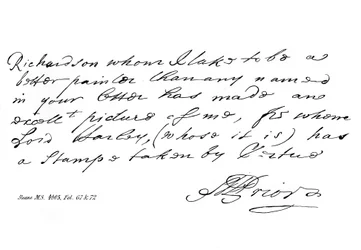 Richardson whom I take to be a
better painter than any named
in your letter has made an
excellt picture of me, from whom
Lord Harley, (whose it is) has
a Stamp taken by Vertue
MPrior
Sloane MS. 4065, Fol. 67 & 72